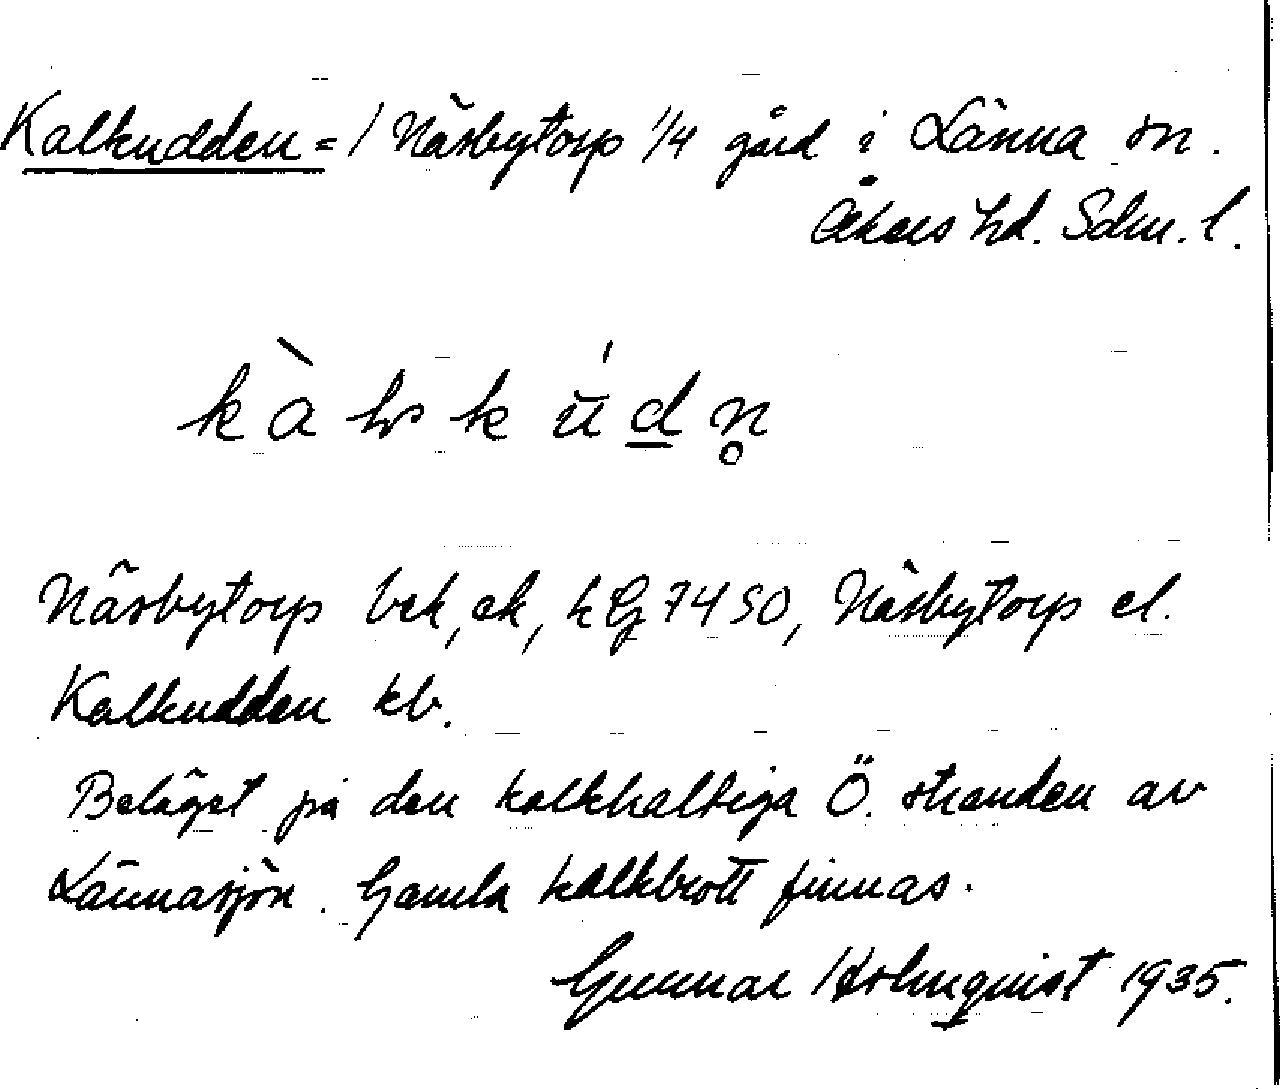 Kalkudden = / Näsbytorp 1/4 gård i Länna sn.
Åkers hd. Sdm. l.
Näsbytorp bek, ek, hG 7450, Näsbytorp el.
Kalkudden kb.
Beläget på den kalkhaltiga Ö. stranden av
Lännasjön. Gamla kalkbrott finnas.
Gunnar Holmquist 1935.